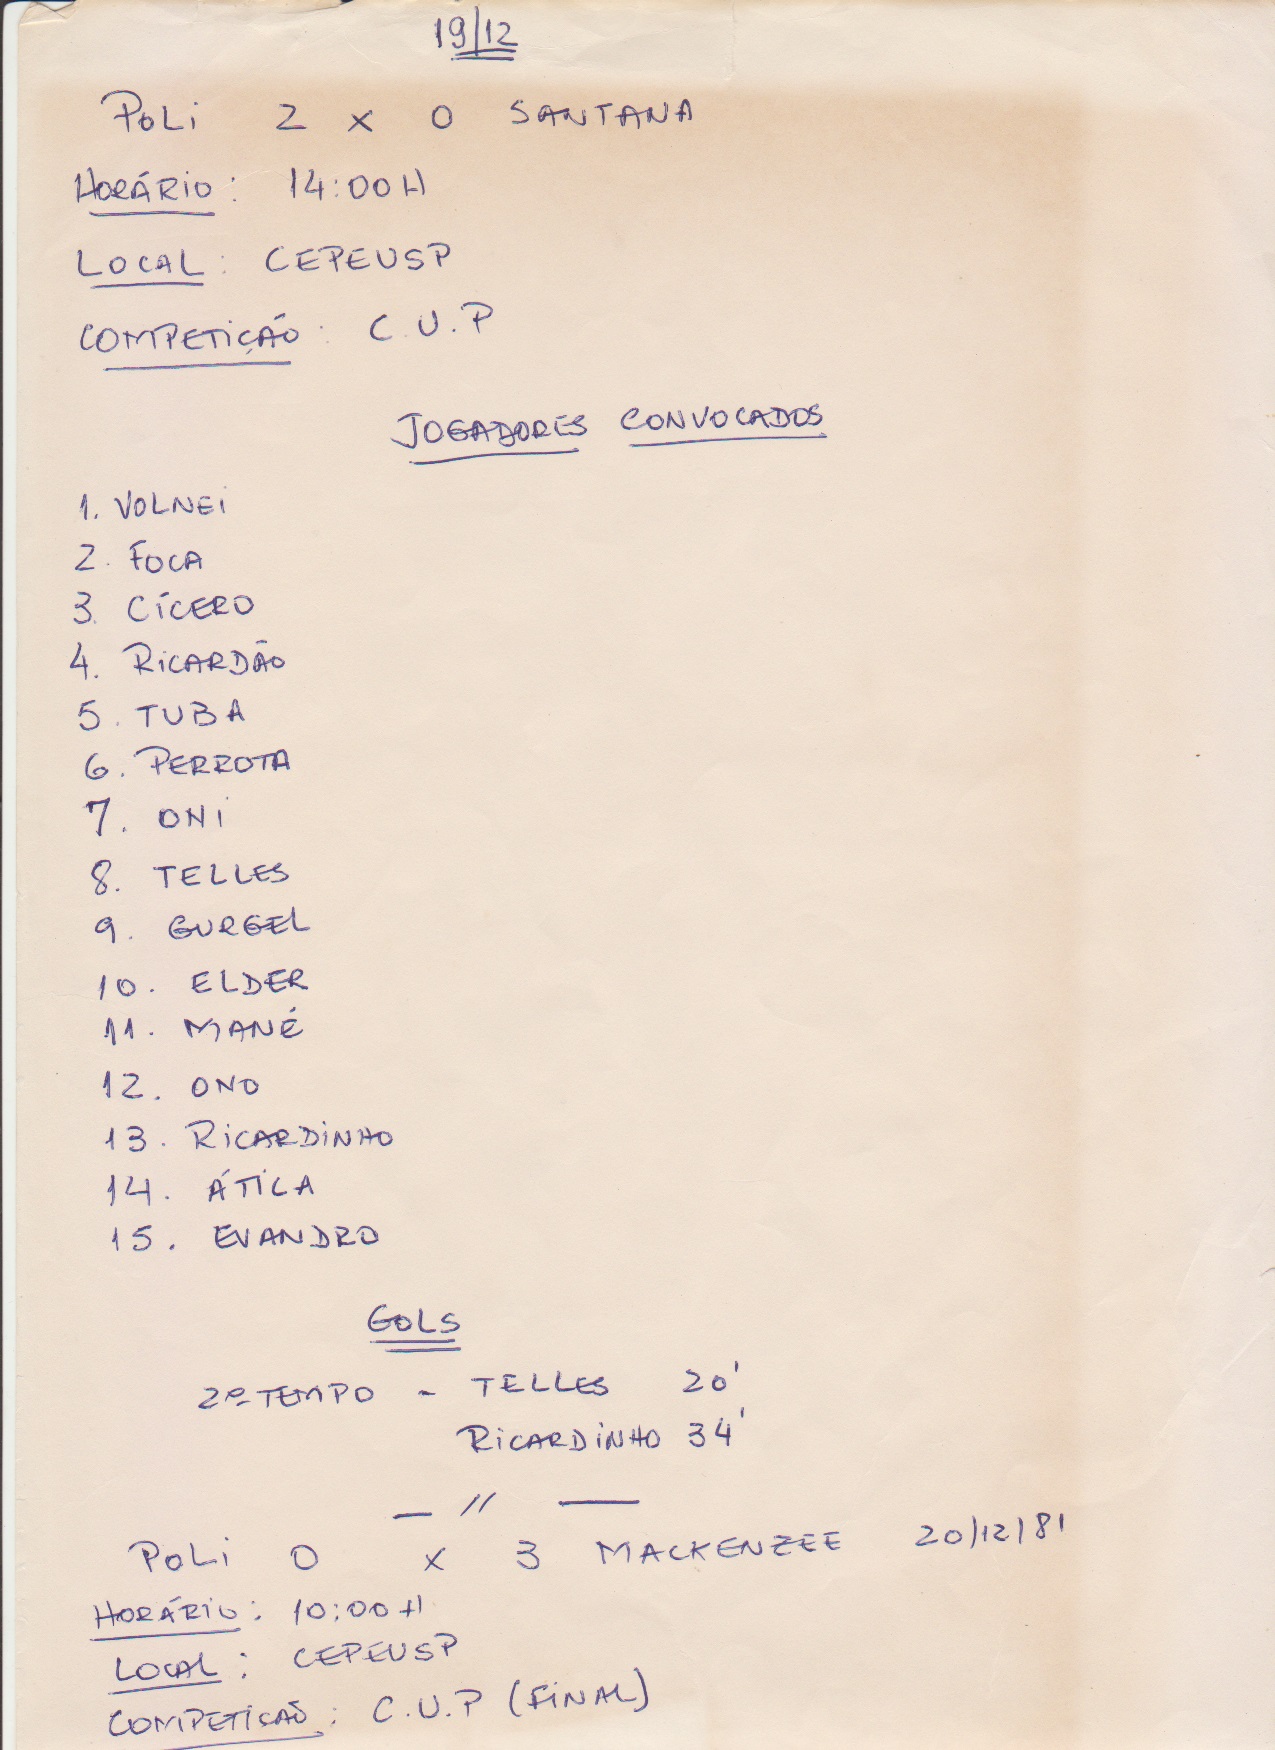 19/12
POLI 2 x 0 SANTANA
HORÁRIO: 14:00H
LOCAL: CEPEUSP
COMPETIÇÃO: C.U.P
JOGADORES CONVOCADOS
1. VOLNEI
2. FOCA
3. CÍCERO
4. RICARDÃO
5. TUBA
6. PERROTA
7. ONI
8. TELLES
9. GURGEL
10. ELDER
11. MANÉ
12. ONO
13. RICARDINHO
14. ÁTILA
15. EVANDRO
GOLS
2º TEMPO - TELLES 20'
RICARDINHO 34'
— // —
POLI 0 x 3 MACKENZEE 20/12/81
HORÁRIO: 10:00H
LOCAL: CEPEUSP
COMPETIÇÃO: C.U.P (FINAL)